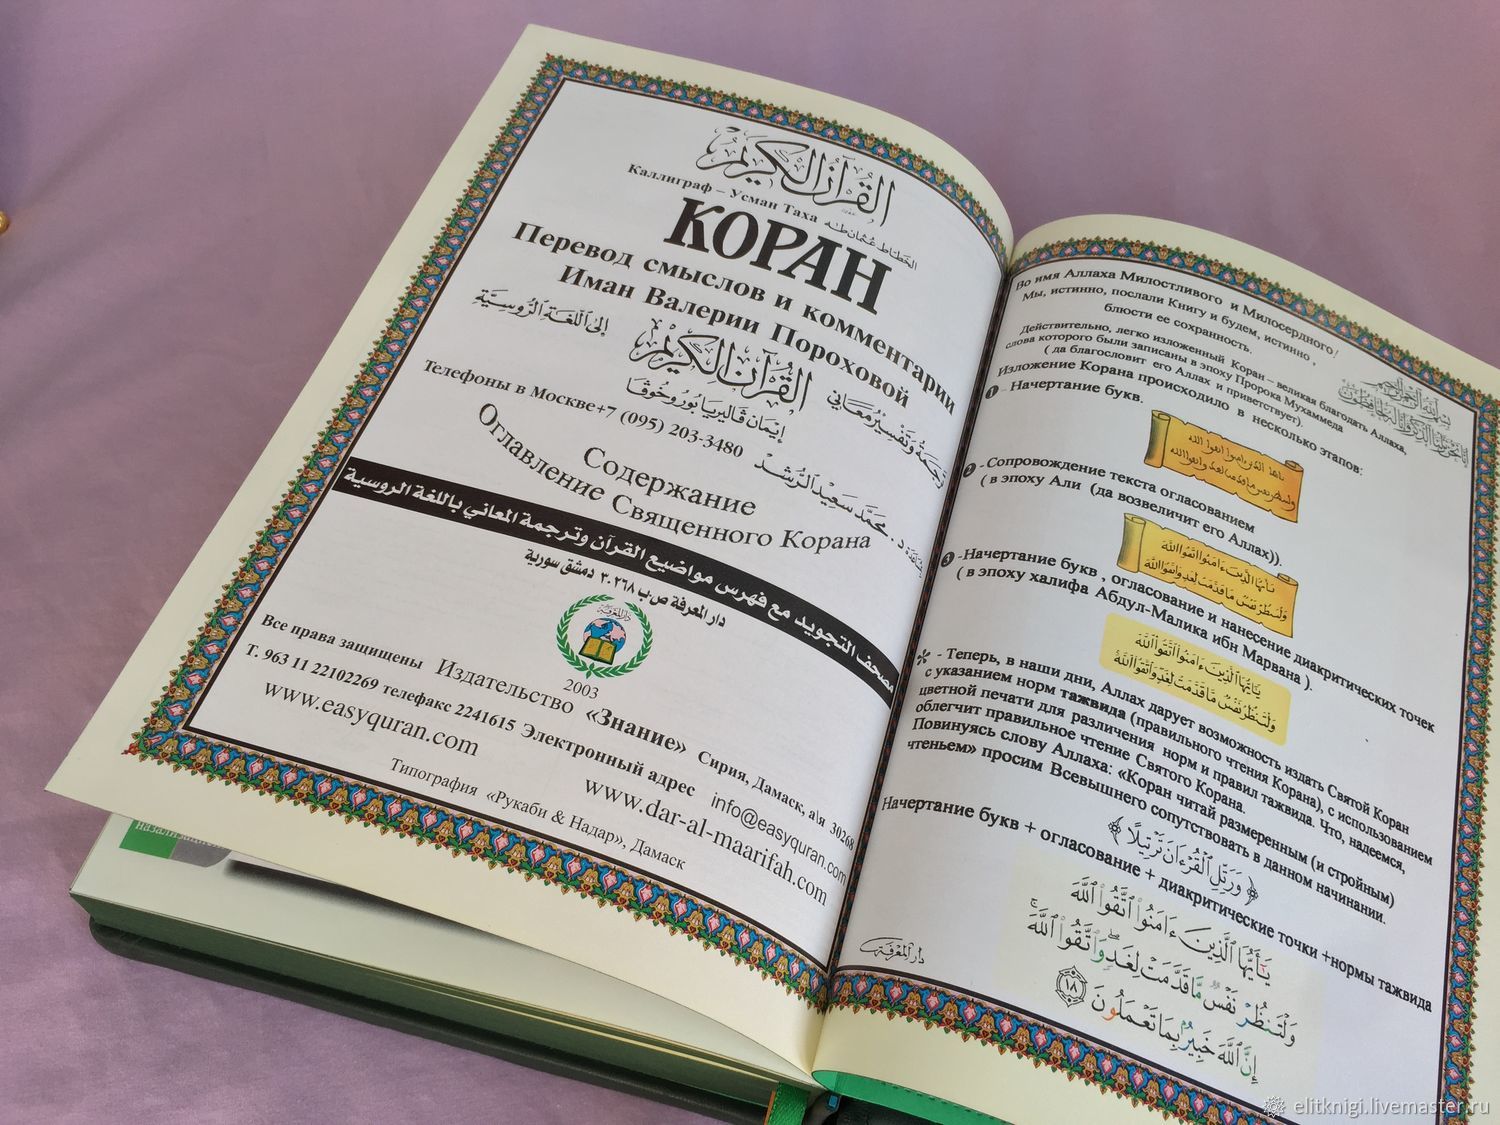 القرآن الكريم
Каллиграф – Усман Таха
الخطاط عثمان طه
КОРАН
Перевод смыслов и комментарии
Иман Валерии Пороховой
القرآن الكريم
ترجمة وتفسير معاني
إلى اللغة الروسية
إيمان ڤاليريا بوروخوڤا
د. محمد سعيد الرشد
Телефоны в Москве+7 (095) 203-3480
Содержание
Оглавление Священного Корана
مصحف التجويد مع فهرس مواضيع القرآن وترجمة المعاني باللغة الروسية
دار المعرفة ص.ب ٣٠٢٦٨ دمشق سورية
دار المعرفة
2003
Все права защищены Издательство «Знание» Сирия, Дамаск, а\я 30268
Т. 963 11 22102269 телефакс 2241615 Электронный адрес info@easyquran.com
www.easyquran.com www.dar-al-maarifah.com
Типография «Рукаби & Надар», Дамаск
назализация
Во имя Аллаха Милостливого и Милосердного!
Мы, истинно, послали Книгу и будем, истинно,
блюсти ее сохранность.
بسم الله الرحمن الرحيم
إنا نحن نزلنا الذكر وإنا له لحافظون
Действительно, легко изложенный Коран – великая благодать Аллаха,
слова которого были записаны в эпоху Пророка Мухаммеда
( да благословит его Аллах и приветствует).
Изложение Корана происходило в несколько этапов:
1 – Начертание букв.
2 - Сопровождение текста огласованием
( в эпоху Али (да возвеличит его Аллах)).
يَٰأَيُّهَا ٱلَّذِينَ ءَامَنُوا ٱتَّقُوا ٱللَّهَ
وَلْتَنظُرْ نَفْسٌ مَّا قَدَّمَتْ لِغَدٍ وَٱتَّقُوا ٱللَّهَ
3 -Начертание букв , огласование и нанесение диакритических точек
( в эпоху халифа Абдул-Малика ибн Марвана ).
يَٰأَيُّهَا ٱلَّذِينَ ءَامَنُوا ٱتَّقُوا ٱللَّهَ
وَلْتَنظُرْ نَفْسٌ مَّا قَدَّمَتْ لِغَدٍ وَٱتَّقُوا ٱللَّهَ
* - Теперь, в наши дни, Аллах дарует возможность издать Святой Коран
с указанием норм тажвида (правильного чтения Корана), с использованием
цветной печати для различения норм и правил тажвида. Что, надеемся,
облегчит правильное чтение Святого Корана.
Повинуясь слову Аллаха: «Коран читай размеренным (и стройным)
чтеньем» просим Всевышнего сопутствовать в данном начинании.
﴿ وَرَتِّلِ ٱلْقُرْءَانَ تَرْتِيلًا ﴾
Начертание букв + огласование + диакритические точки +нормы тажвида
يَٰأَيُّهَا ٱلَّذِينَ ءَامَنُوا۟ ٱتَّقُوا۟ ٱللَّهَ
وَلْتَنظُرْ نَفْسٌ مَّا قَدَّمَتْ لِغَدٍ ۖ وَٱتَّقُوا۟ ٱللَّهَ ۚ
إِنَّ ٱللَّهَ خَبِيرٌۢ بِمَا تَعْمَلُونَ ١٨
دار المعرفة
elitknigi.livemaster.ru